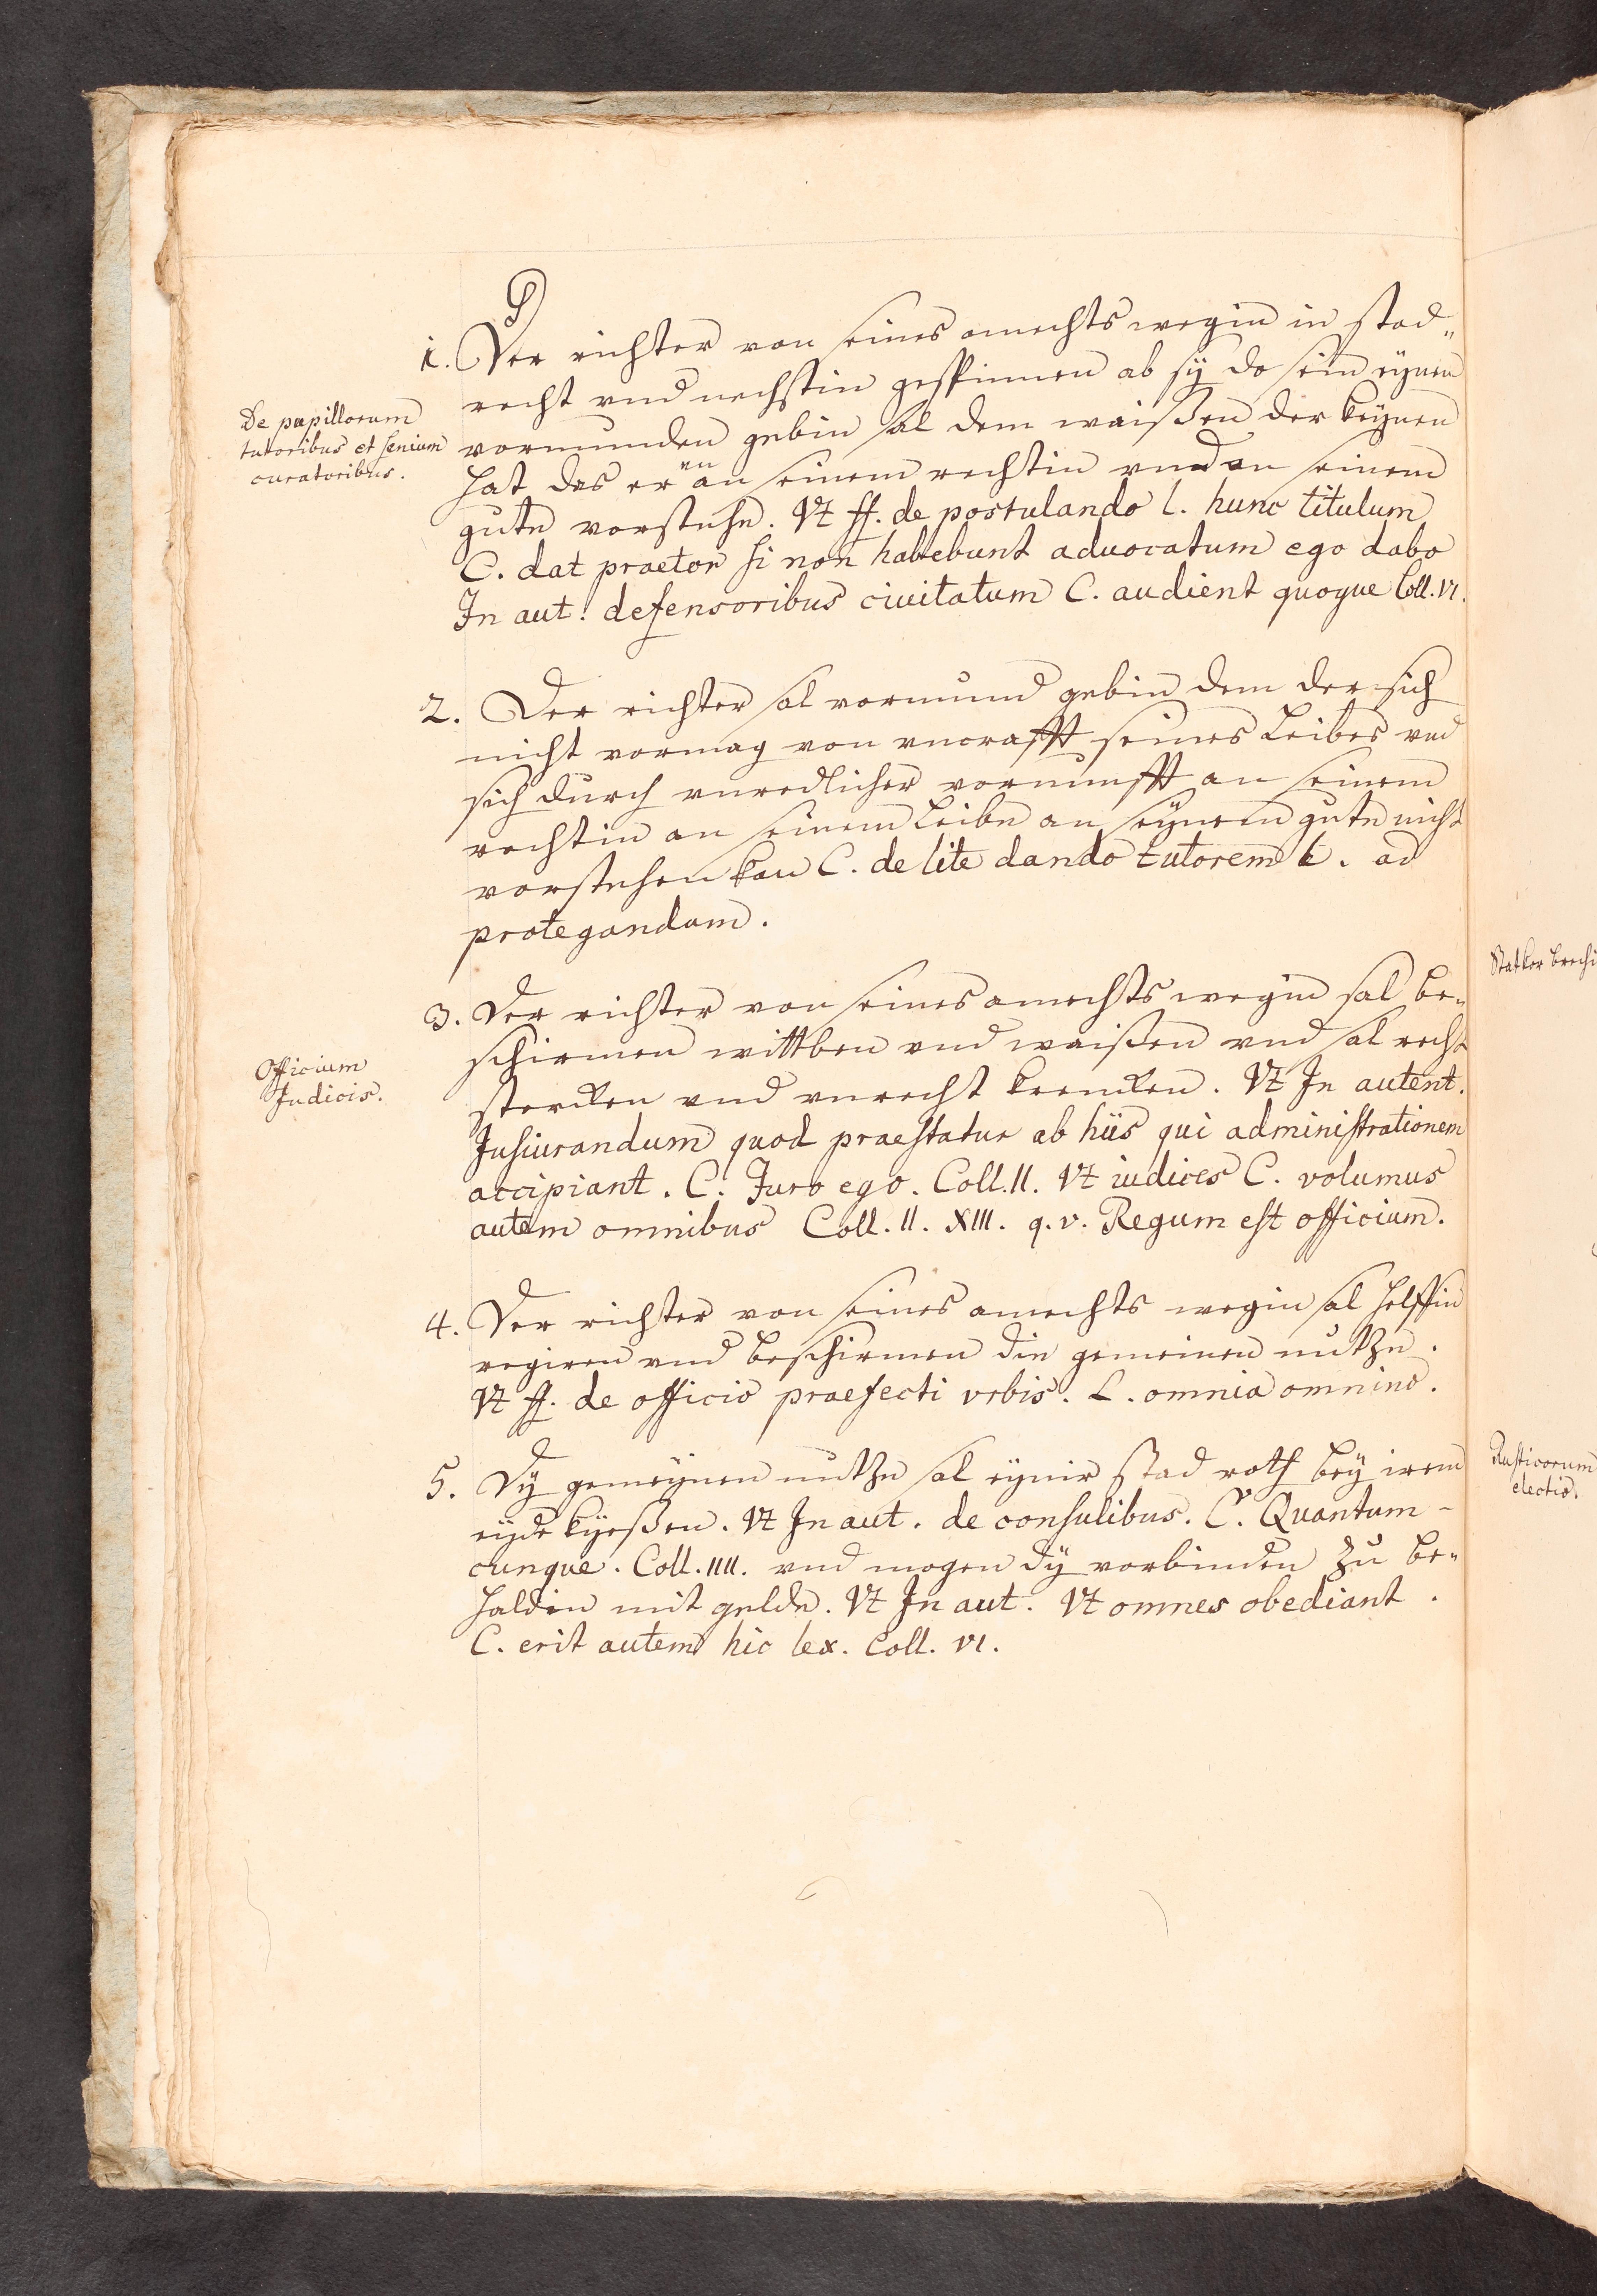 1. Der richter von seines amechts wegin in stad„
recht vnd nechstin gesspinnen ab sÿ do sein eÿnen
De pupillorum
tutoribus et senium
curatoribus.
vormunden gebin sal dem waißen der keÿnen
hat das er an seinem rechtin vnd an seinem
gute vorstehe. Vt ff. de postulando l. hunc titulum
C. dat praetor si non habebunt aduocatum ego dabo
In aut. defensoribus ciuitatum C. audient quoque Coll. VI.
2. Der richter sal vormund gebin dem der sich
nicht vormag von vncrafft seines leibes vnd
sich durch vnredlicher vornunfft an seinem
rechtin an seinem leibe an seÿnem gute nicht
vorstehen kan C. de lite dando tutorem l. ad
protegandam.
3. Der richter von seines amechts wegin sal be„
schirmen wittben vnd waißen vnd sal recht
Officium
Judicis.
stercken vnd vnrecht krencken. Vt In autent.
Jusiurandum quod praestatur ab hiis qui administrationem
accipiant. C. Juro ego. Coll. II. Vt iudices C. volumus
autem omnibus Coll. II. XIII. q. v. Regum est officium.
4. Der richter von seines amechts wegin sal helffin
regiren vnd beschirmen die gemeinen nutze.
Vt ff. de officio praefecti vrbis. L. omnia omnino.
5. Dÿ gemeÿnen nutze sal eÿnir stad roth beÿ irem
eÿde kÿeßen. Vt In aut. de consulibus. C. Quantum-
cunque. Coll. IIII. vnd mogen dÿ vorbinden zu be„
halden mit gelde. Vt In aut. Vt omnes obediant.
C. erit autem hic lex. Coll. VI.
Rusticorum
electio.